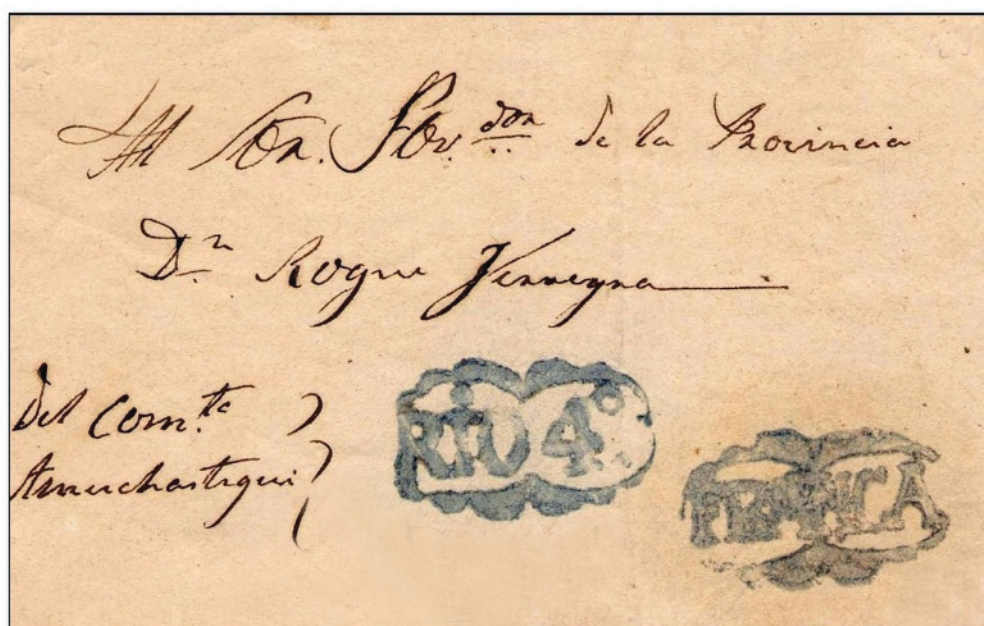 Al Sôr. Gov.don de la Provincia
Dn Roque Ferreyra
Del Com.te
Amuchastegui
RIO 4°
FRANCA